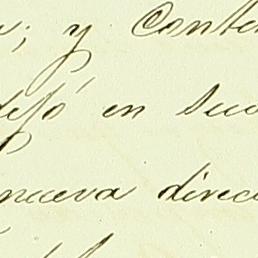 ; y Conten
dejó en suc
nueva direc